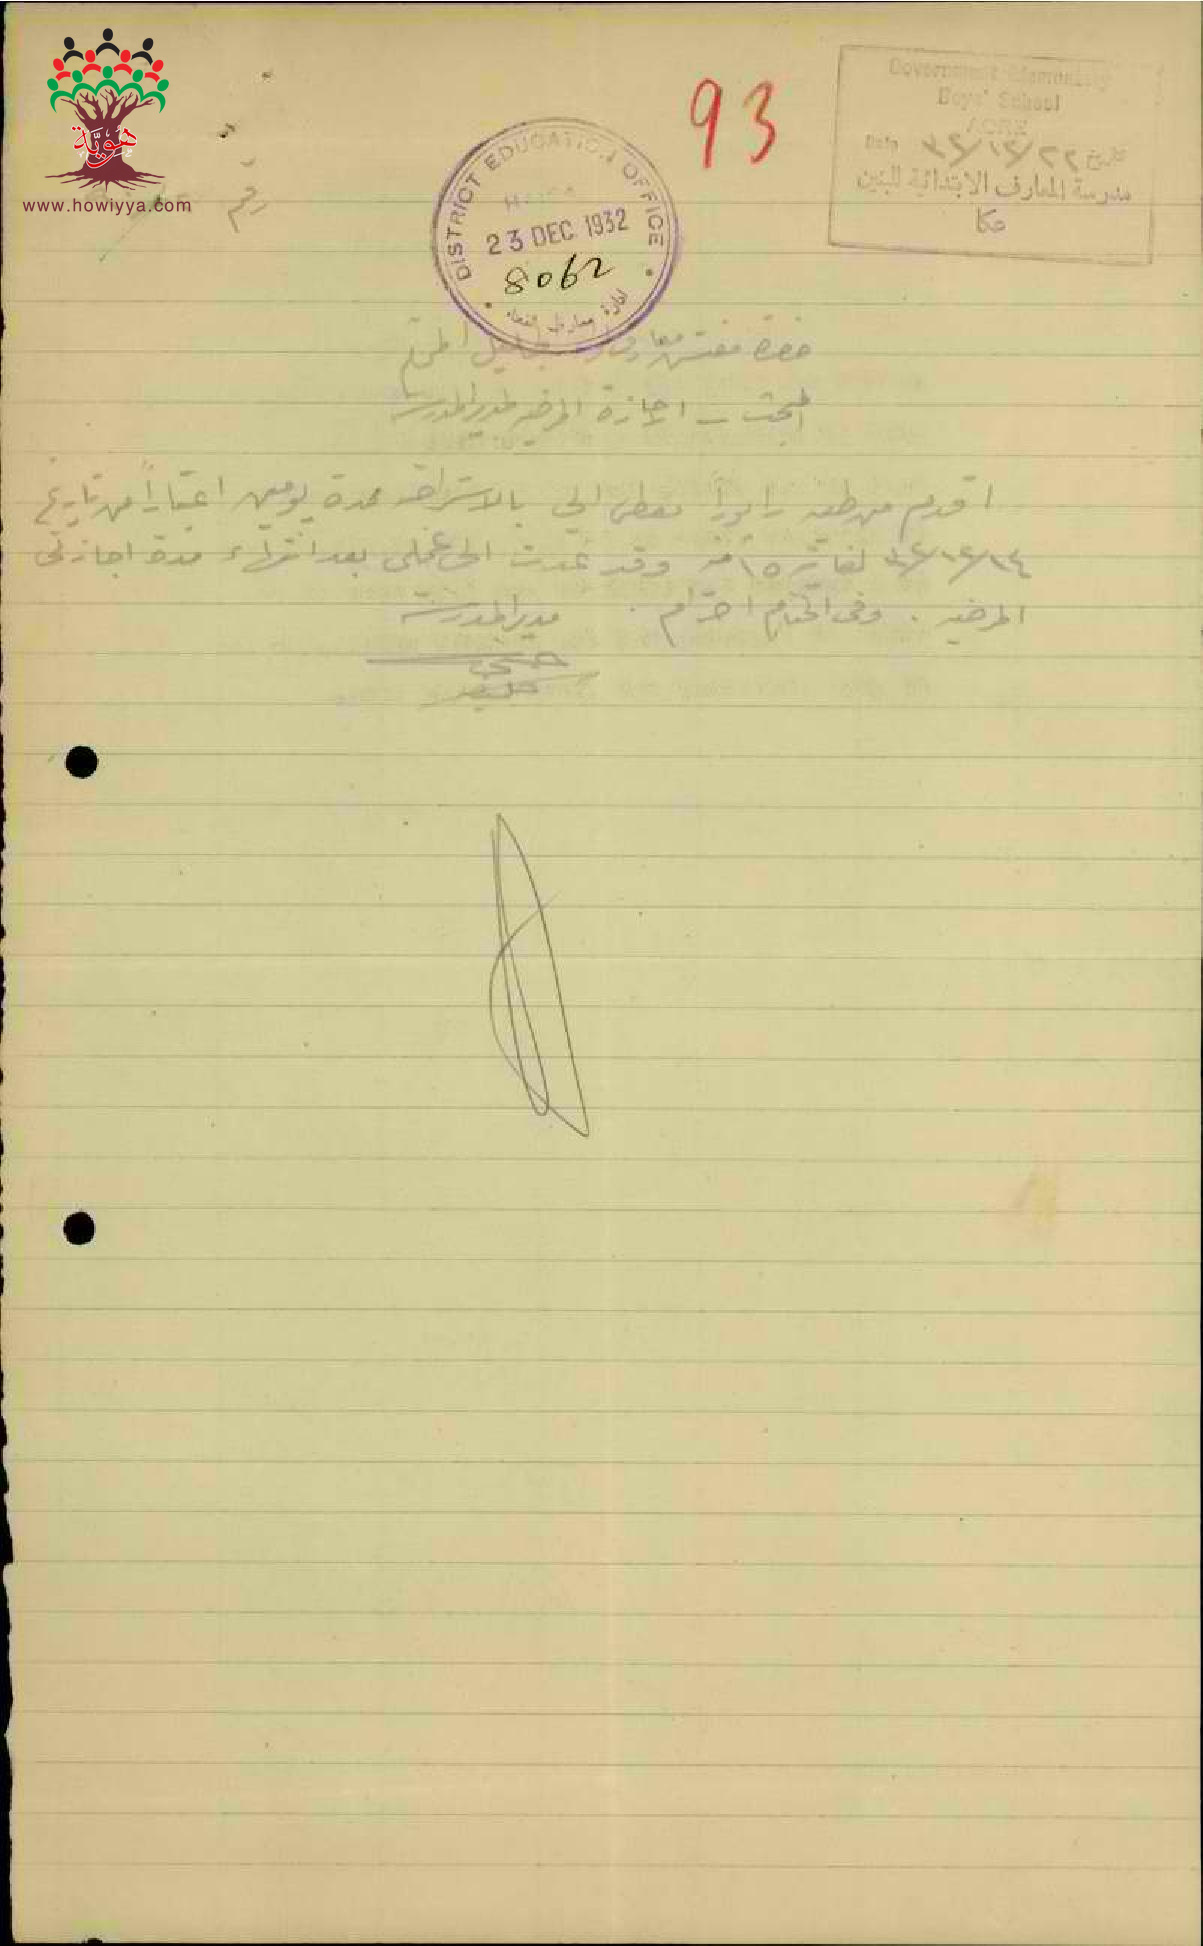 هوية
www.howiyya.com
رقم
93
Government Elementary
Boys' School
ACRE
Date ٣٢/١٢/٢٢ تاريخ
مدرسة المعارف الابتدائية للبنين
عكا
DISTRICT EDUCATION OFFICE
HAIFA
23 DEC 1932
8062
ادارة معارف
حضرة مفتش معارف المحترم
البحث _ الاجازة المرضيه لمدير المدرسة
اقدم من طيه رابوراً معطى الي بالاستراحه لمدة يومين اعتباراً من تاريخ
٣٢/١٢/١٤ لغاية ١٥ منه وقد عدت الى عملي بعد انتهاء مدة اجازتي
المرضيه . وفي الختام احترام .
مدير المدرسة